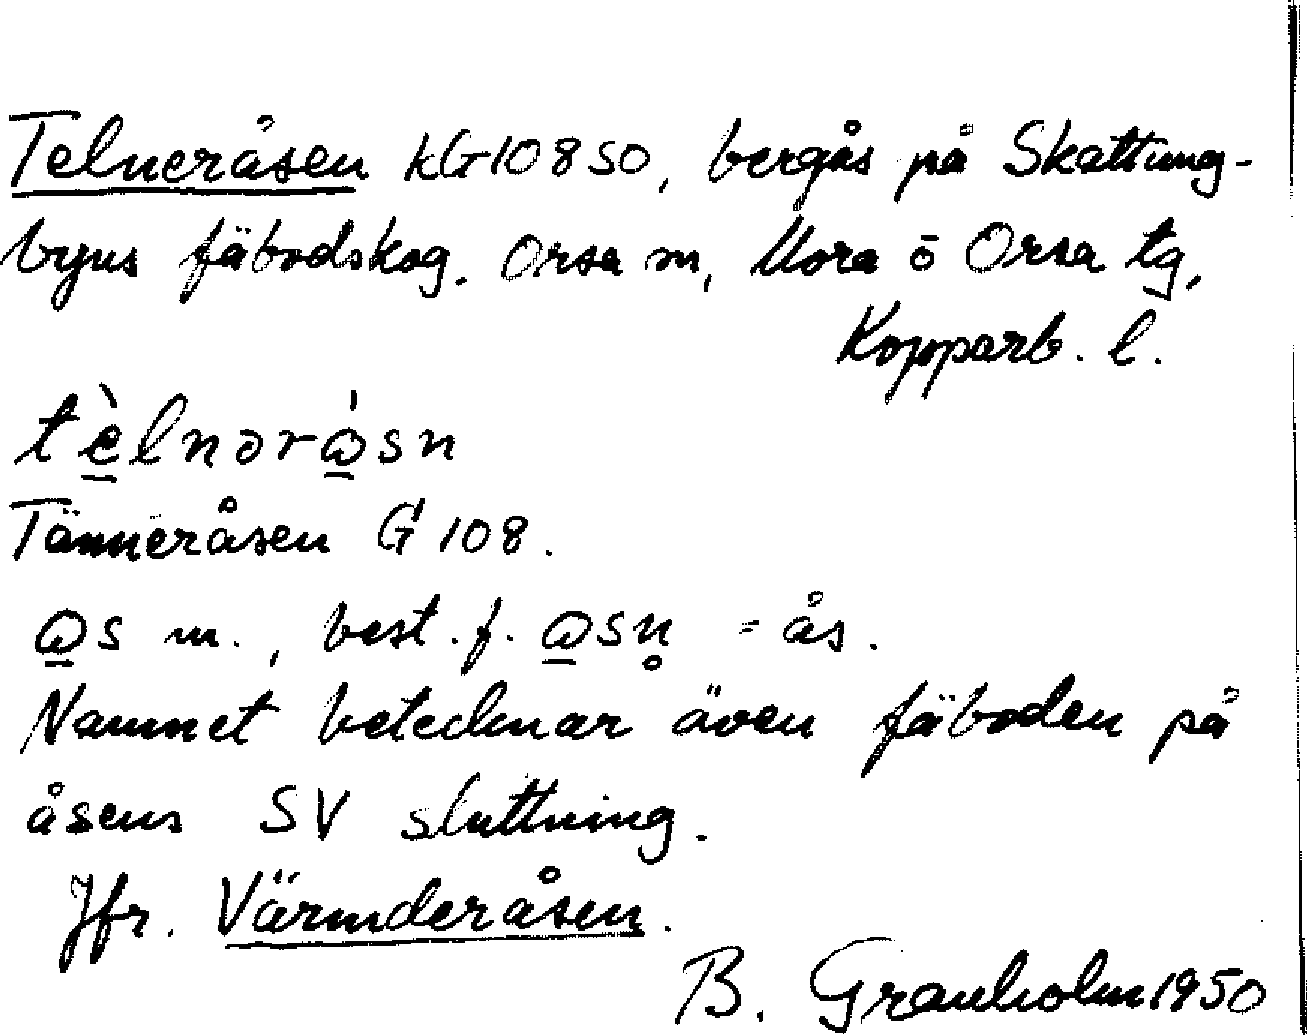 Telneråsen kG108SO, bergås på Skattung-
byns fäbodskog. Orsa sn, Mora o Orsa tg,
Kopparb. l.
tèlnərɷ̱́sn
Tänneråsen G 108.
ɷ̱s m., best. f. ɷ̱sn̥ = ås.
Namnet betecknar även fäboden på
åsens SV sluttning.
Jfr. Värmderåsen.
B. Granholm 1950